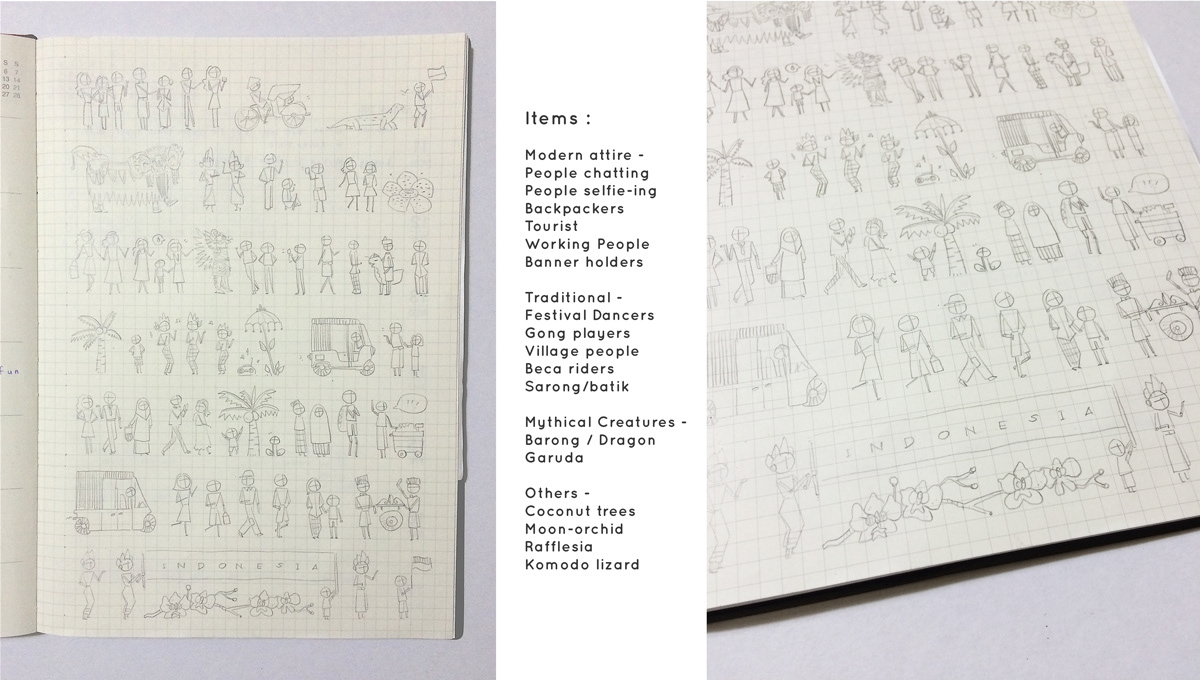 S S
6 7
13 14
20 21
27 28
fun
INDONESIA
Items :
Modern attire -
People chatting
People selfie-ing
Backpackers
Tourist
Working People
Banner holders
Traditional -
Festival Dancers
Gong players
Village people
Beca riders
Sarong/batik
Mythical Creatures -
Barong / Dragon
Garuda
Others -
Coconut trees
Moon-orchid
Rafflesia
Komodo lizard
INDONESIA